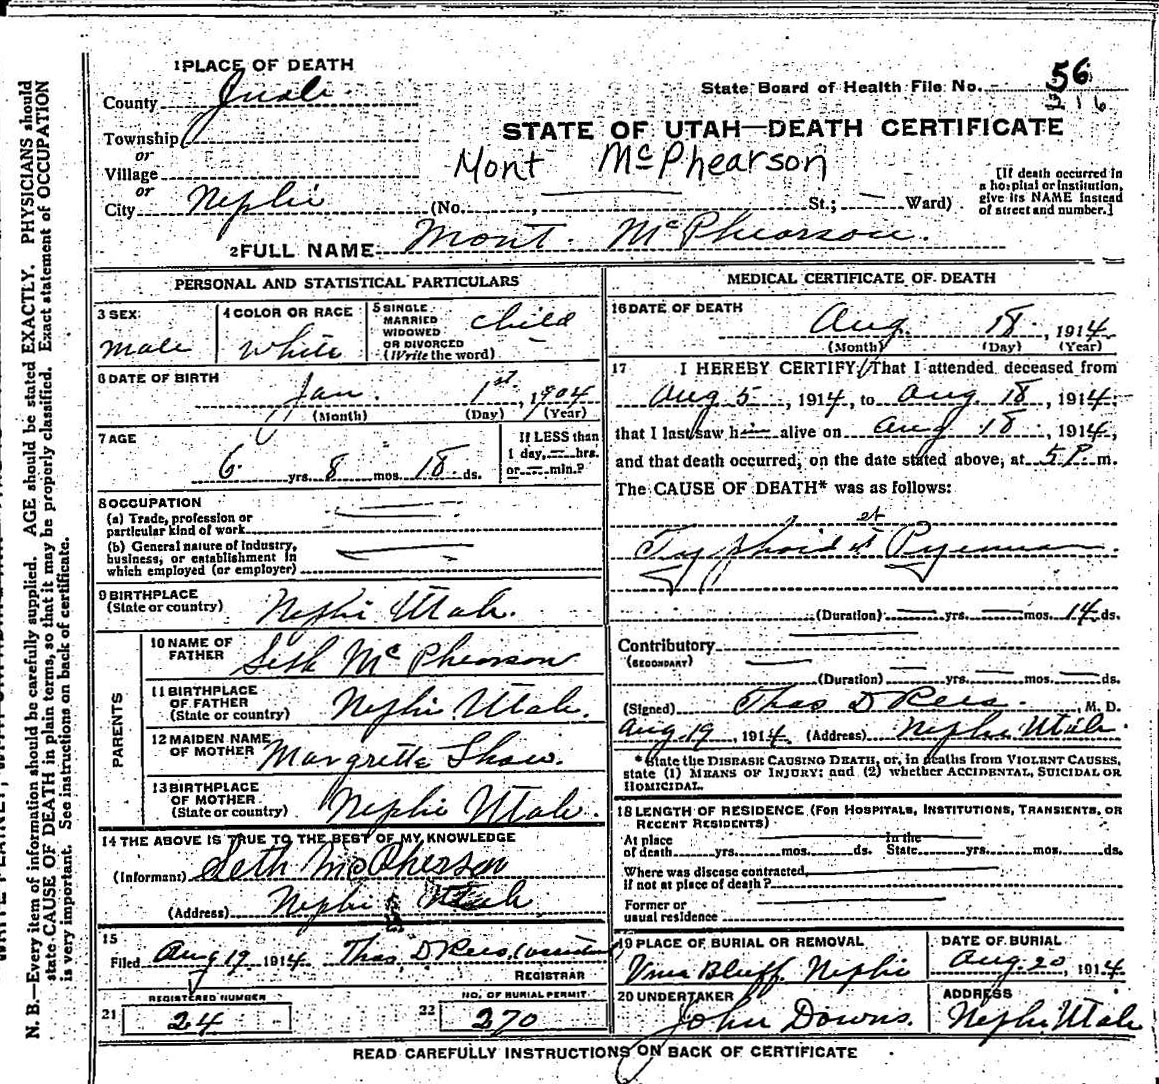 1 PLACE OF DEATH
County Juab
Township
or
Village
or
City Nephi
State Board of Health File No. 56
STATE OF UTAH—DEATH CERTIFICATE
Mont McPhearson
(No. , St.; Ward)
[If death occurred in a hospital or institution, give its NAME instead of street and number.]
2 FULL NAME Mont. McPhearson.
PERSONAL AND STATISTICAL PARTICULARS
3 SEX: Male
4 COLOR OR RACE White
5 SINGLE MARRIED WIDOWED OR DIVORCED (Write the word) child
6 DATE OF BIRTH
Jan. 1st, 1904
(Month) (Day) (Year)
7 AGE
6 yrs. 8 mos. 18 ds.
If LESS than 1 day, — hrs. or — min.?
8 OCCUPATION
(a) Trade, profession or particular kind of work
(b) General nature of industry, business, or establishment in which employed (or employer)
9 BIRTHPLACE (State or country) Nephi Utah.
PARENTS
10 NAME OF FATHER Seth McPhearson
11 BIRTHPLACE OF FATHER (State or country) Nephi Utah.
12 MAIDEN NAME OF MOTHER Margrette Shaw.
13 BIRTHPLACE OF MOTHER (State or country) Nephi Utah.
14 THE ABOVE IS TRUE TO THE BEST OF MY KNOWLEDGE
(Informant) Seth McPherson
(Address) Nephi Utah
15
Filed Aug 19 1914 Thos. D Rees,
REGISTRAR
REGISTERED NUMBER
21 24
NO. OF BURIAL PERMIT
22 270
MEDICAL CERTIFICATE OF DEATH
16 DATE OF DEATH
Aug. 18, 1914
(Month) (Day) (Year)
17 I HEREBY CERTIFY, That I attended deceased from
Aug 5, 1914, to Aug. 18, 1914,
that I last saw him alive on Aug 18, 1914,
and that death occurred, on the date stated above, at 5 P. m.
The CAUSE OF DEATH* was as follows:
Typhoid et
(Duration) — yrs. — mos. 14 ds.
Contributory
(SECONDARY)
(Duration) — yrs. — mos. — ds.
(Signed) Thos D Rees, M. D.
Aug. 19, 1914. (Address) Nephi Utah.
*State the DISEASE CAUSING DEATH, or, in deaths from VIOLENT CAUSES, state (1) MEANS OF INJURY; and (2) whether ACCIDENTAL, SUICIDAL OR HOMICIDAL.
18 LENGTH OF RESIDENCE (FOR HOSPITALS, INSTITUTIONS, TRANSIENTS, OR RECENT RESIDENTS)
At place of death yrs. mos. ds. In the State yrs. mos. ds.
Where was disease contracted, if not at place of death?
Former or usual residence
19 PLACE OF BURIAL OR REMOVAL
Vine Bluff Nephi
DATE OF BURIAL
Aug. 20, 1914
20 UNDERTAKER
John Downs.
ADDRESS
Nephi Utah
READ CAREFULLY INSTRUCTIONS ON BACK OF CERTIFICATE
N. B.—Every item of information should be carefully supplied. AGE should be stated EXACTLY. PHYSICIANS should
state CAUSE OF DEATH in plain terms, so that it may be properly classified. Exact statement of OCCUPATION
is very important. See instructions on back of certificate.